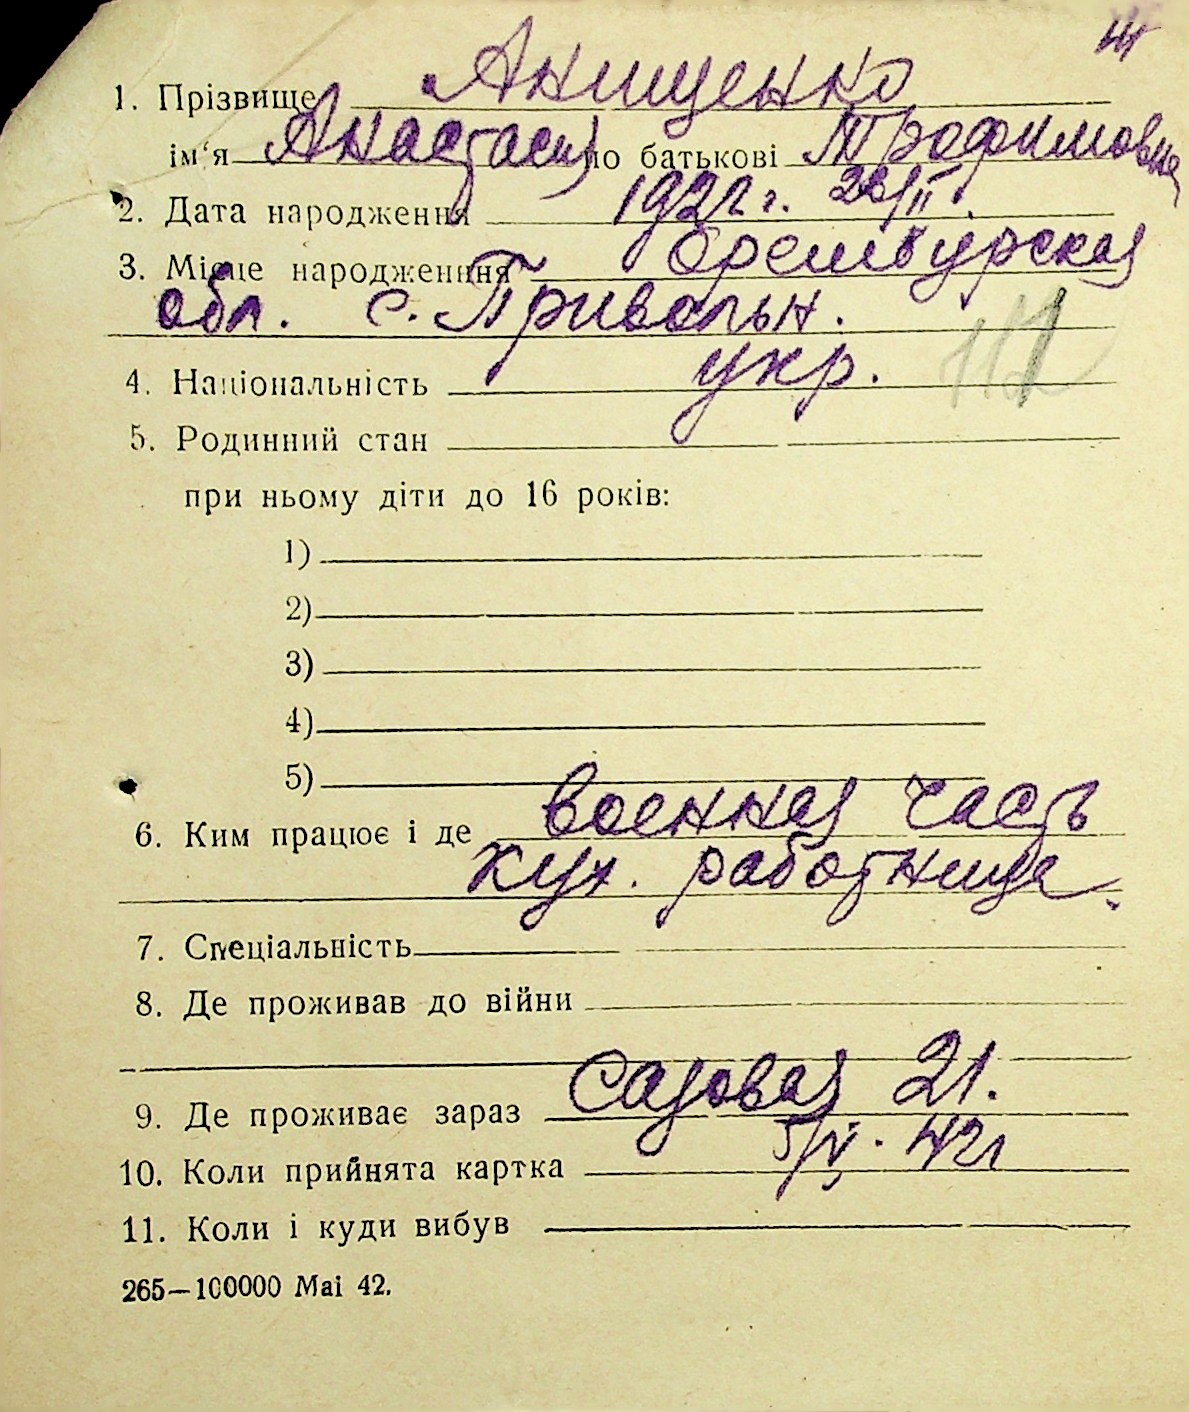 ж
1. Прізвище Анищенко
ім'я Анастасия по батькові Трофимовна
2. Дата народження 1922 г. 26/II.
3. Місце народженння Оренбурская
обл. с. Привольн.
4. Національність укр.
5. Родинний стан
при ньому діти до 16 років:
1)
2)
3)
4)
5)
6. Ким працює і де военная часть
кух. работница.
7. Спеціальність
8. Де проживав до війни
9. Де проживає зараз Садовая 21.
10. Коли прийнята картка 42г
11. Коли і куди вибув
265—100000 Mai 42.